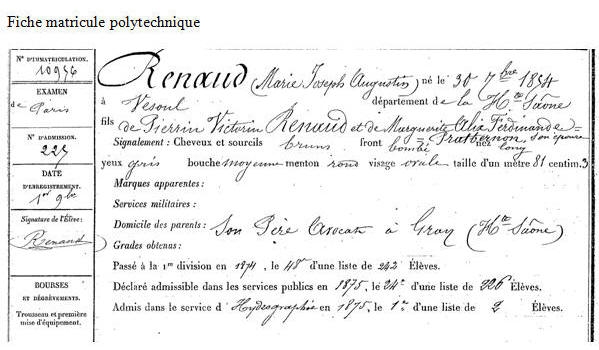 Fiche matricule polytechnique
N° D'IMMATRICULATION.
10956
EXAMEN
de Paris
N° D'ADMISSION.
225
DATE
D'ENREGISTREMENT.
1er 9bre
Signature de l'Élève:
Renaud
BOURSES
ET DÉGRÈVEMENTS.
Trousseau et première
mise d'équipement.
Renaud (Marie Joseph Augustin) né le 30 7bre 1854
à Vesoul département de la Hte Saône
fils de Pierrin Victorin Renaud et de Marguerite Alix Ferdinande
Pratbernon, son épouse
Signalement: Cheveux et sourcils bruns front bombé nez long
yeux gris bouche moyenne menton rond visage ovale taille d'un mètre 81 centim. 3
Marques apparentes:
Services militaires:
Domicile des parents: Son Père Avocat à Gray (Hte Saône)
Grades obtenus:
Passé à la 1re division en 1874, le 48e d'une liste de 242 Élèves.
Déclaré admissible dans les services publics en 1875, le 24e d'une liste de 226 Élèves.
Admis dans le service d'Hydrographie en 1875, le 1er d'une liste de 2 Élèves.